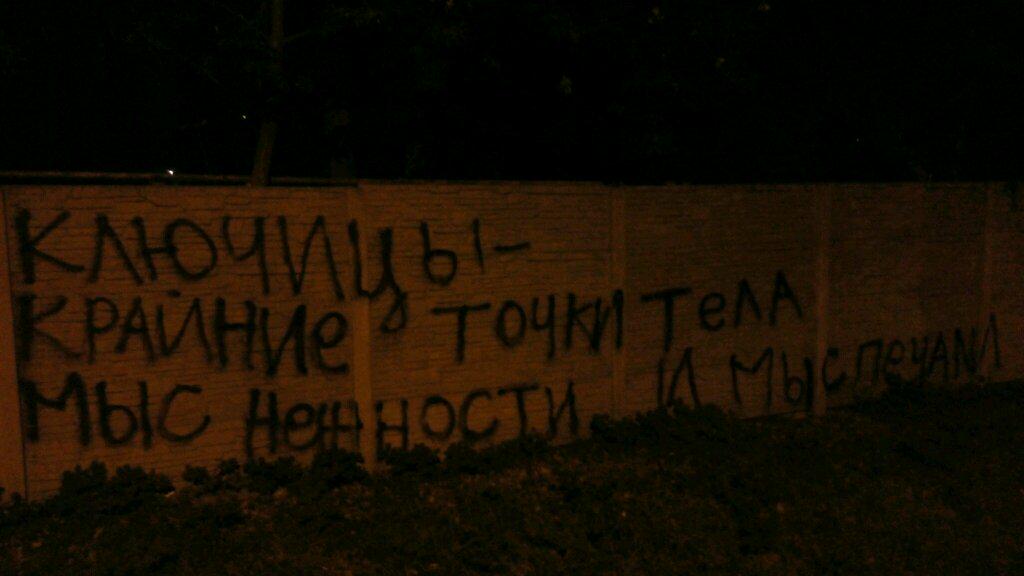 КЛЮЧИЦЫ-
КРАЙНИЕ ТОЧКИ ТЕЛА
МЫС НЕЖНОСТИ И МЫС ПЕЧАЛИ